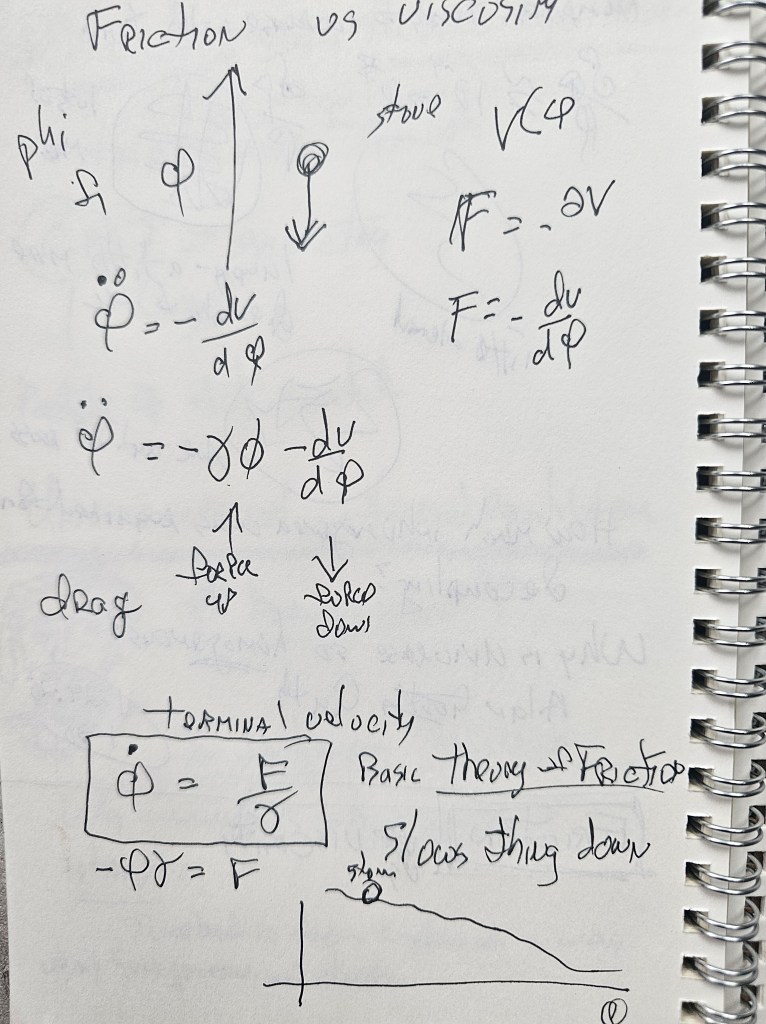 FRICTION VS VISCOSITY
phi
fi φ
stone V(φ
F = - ∂V
φ̈ = - dv/dφ
F = - dv/dφ
φ̈ = - γφ - dv/dφ
drag
force up
force down
TERMINAL velocity
φ̇ = F/γ
Basic theory of FRICTION
- φγ = F
Slows thing down
stone
φ